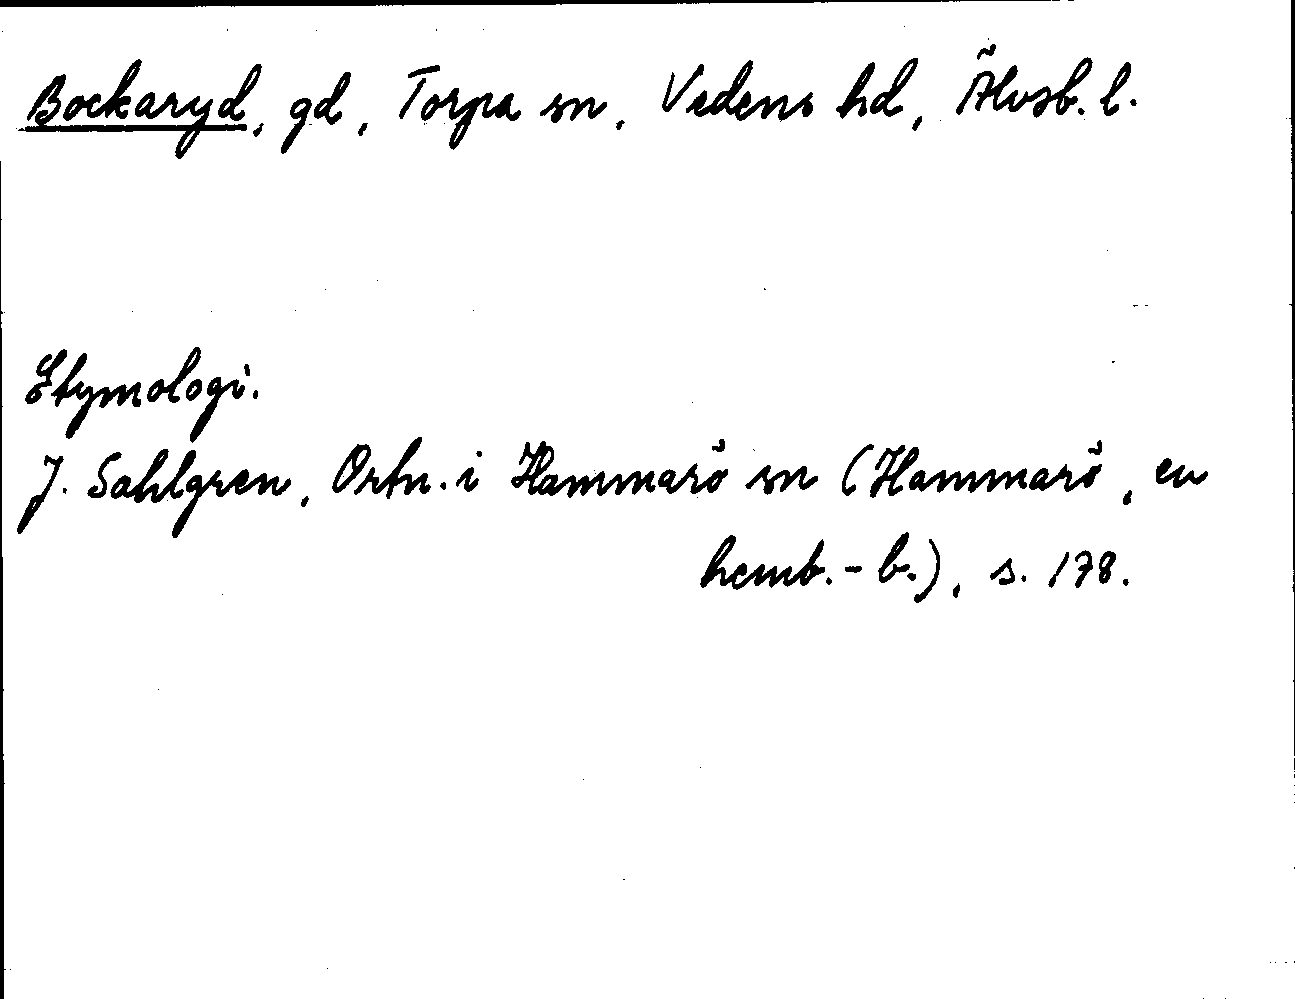 Bockaryd, gd, Torpa sn, Vedens hd, Älvsb. l.
Etymologi.
J. Sahlgren, Ortn. i Hammarö sn (Hammarö, en
hemb.-b.), s. 178.